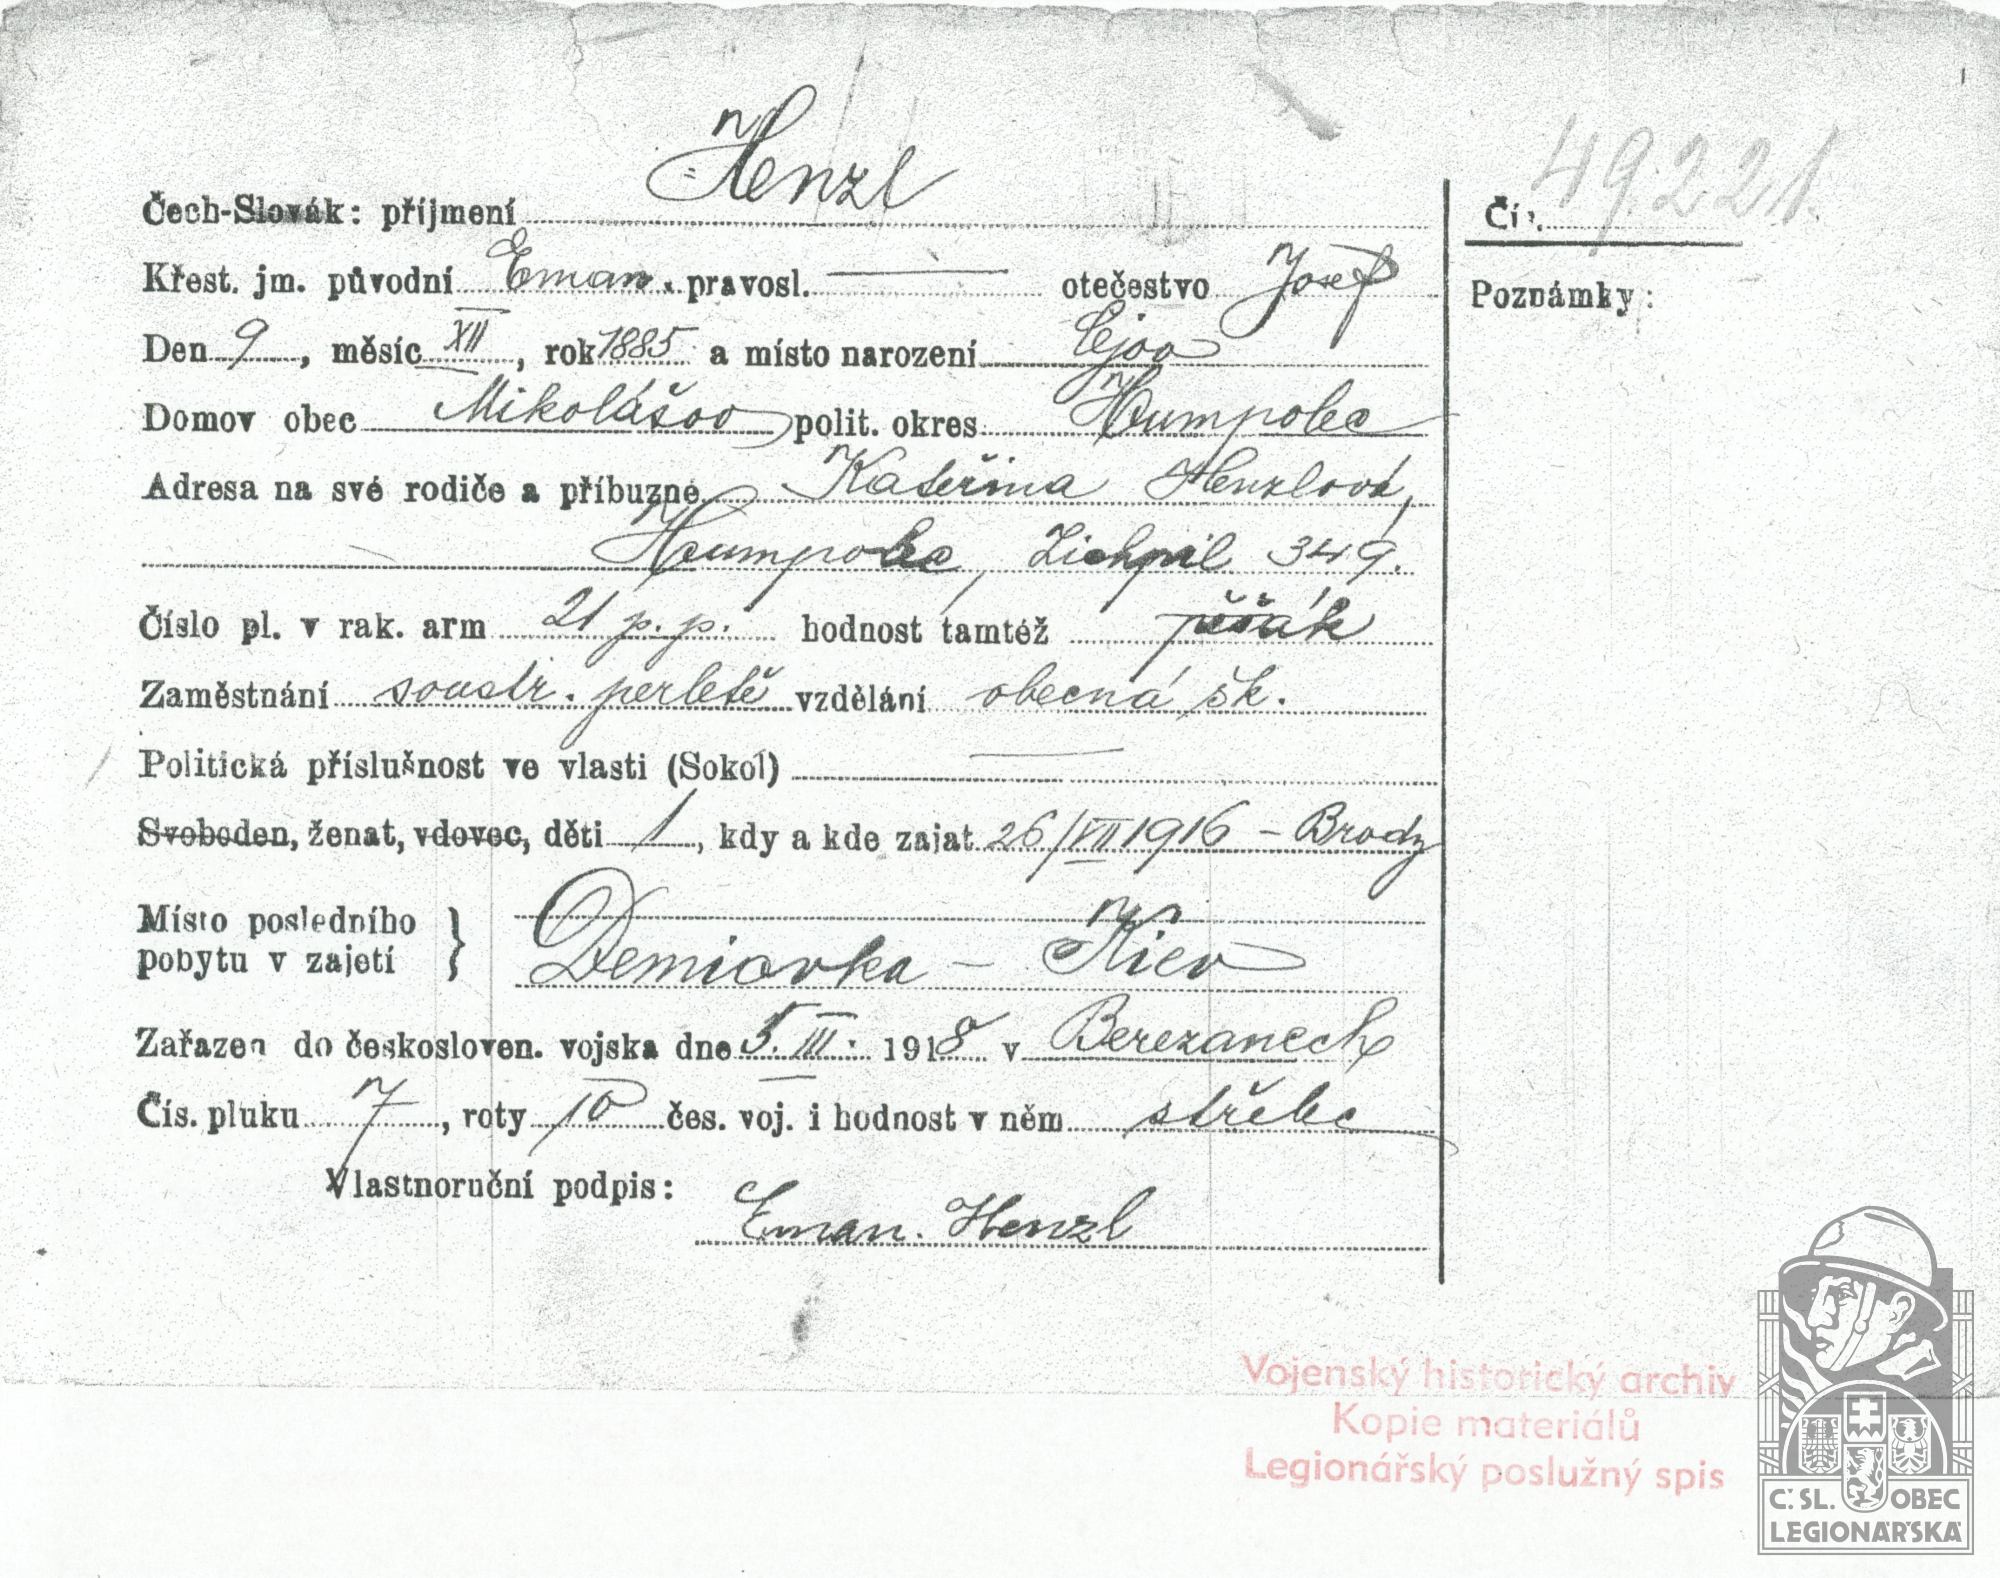 Čech-Slovák: příjmení Henzl
Čí 49221.
Křest. jm. původní Eman. pravosl. — otečestvo Josef
Poznámky:
Den 9, měsíc XII, rok 1885 a místo narození Čejov
Domov obec Mikolášov polit. okres Humpolec
Adresa na své rodiče a příbuzné Kateřina Henzlová,
Humpolec, Zichpil 349.
Číslo pl. v rak. arm 21 p. p. hodnost tamtéž pěšák
Zaměstnání soustr. perletě vzdělání obecná šk.
Politická příslušnost ve vlasti (Sokol) —
Svoboden, ženat, vdovec, děti 1, kdy a kde zajat 26/VII 1916 – Brody
Místo posledního
pobytu v zajetí } Demiovka – Kiev
Zařazen do českosloven. vojska dne 5. III. 1918 v Berezanech
Čís. pluku 7, roty 10 čes. voj. i hodnost v něm střelec
Vlastnoruční podpis:
Eman. Henzl
Vojenský historický archiv
Kopie materiálů
Legionářský poslužný spis
Č. SL. OBEC
LEGIONÁŘSKÁ